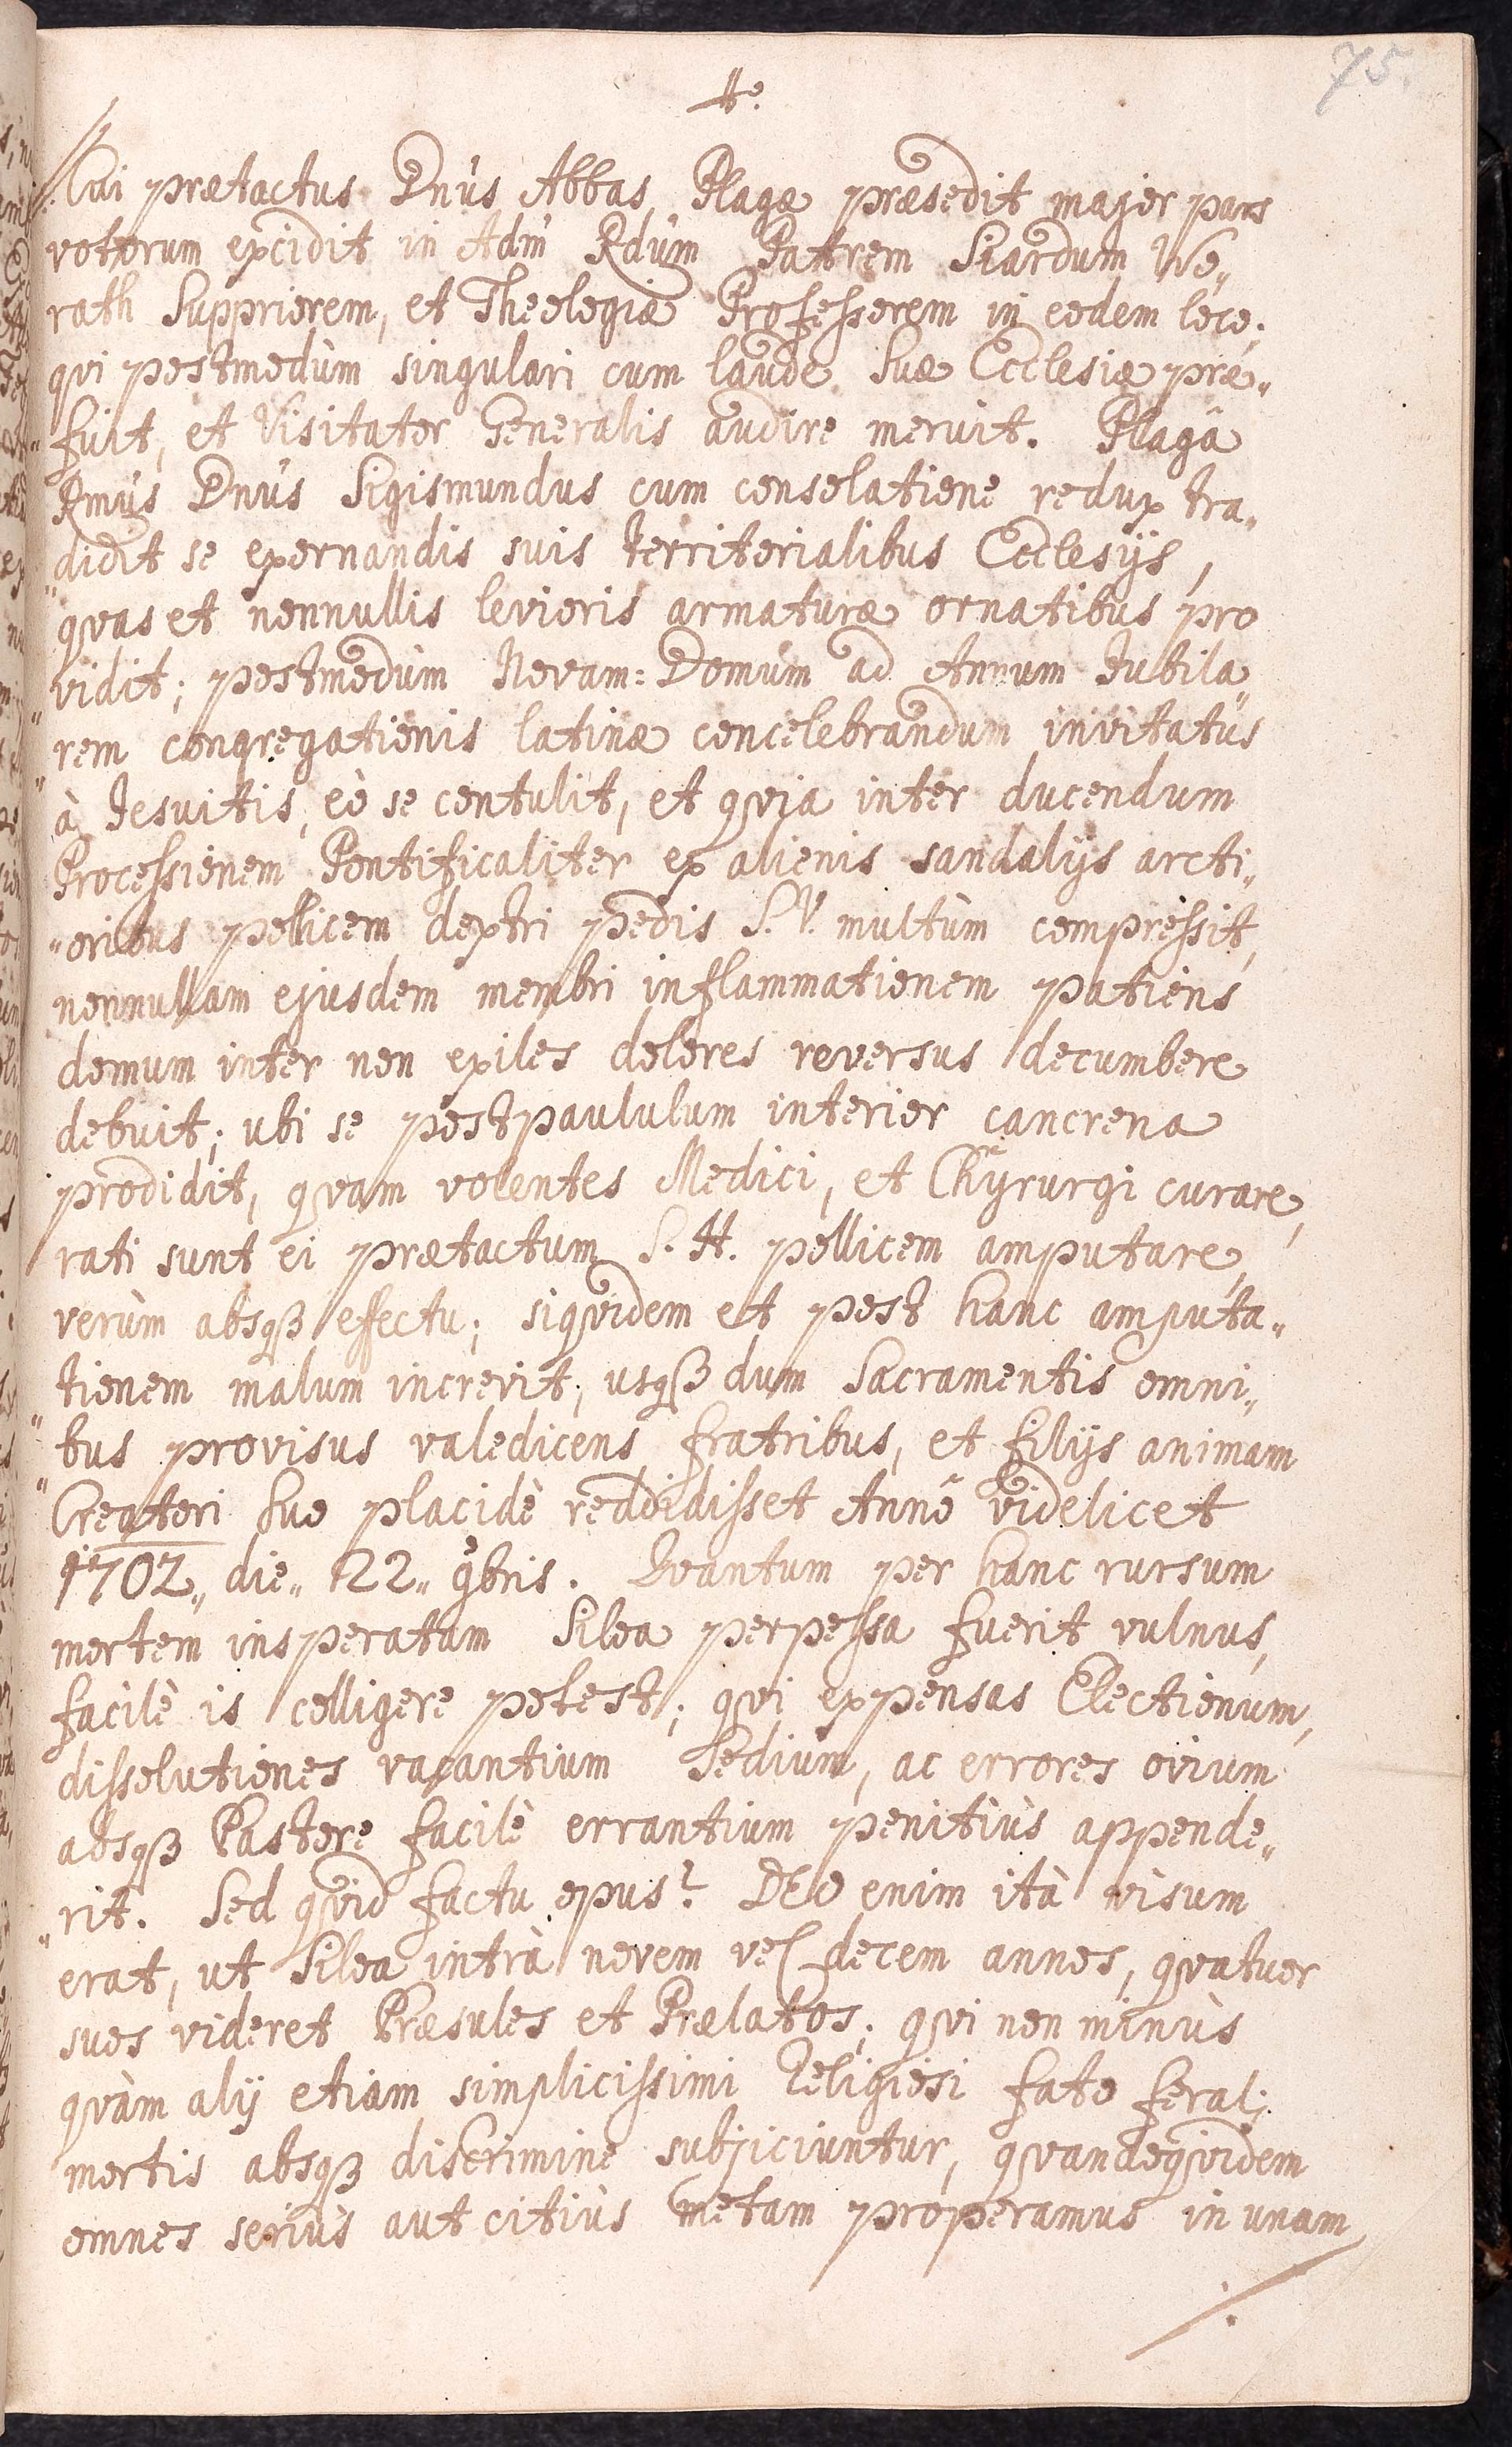 75.
Cui prætactus Dn̄us Abbas Plagæ præsedit major pars
votorum excidit in Adm̄ Rdūm Patrem Siardum Wo„
rath Suppriorem, et Theologiæ Professorem in eodem loco;
qvi postmodùm singulari cum laude Suæ Ecclesiæ præ„
„fuit, et Visitator Generalis audire meruit. Plagâ
Rmūs Dnūs Sigismundus cum consolatione redux tra„
„didit se exornandis suis territorialibus Ecclesijs,
qvas et nonnullis levioris armaturæ ornatibus pro
vidit; postmodùm Novam=Domum ad Annum Jubila„
„rem congregationis latinæ concelebrandum invitatus
à Jesuitis, eò se contulit, et qvia inter ducendum
Processionem Pontificaliter ex alienis sandalijs arcti„
„oribus pollicem dextri pedis S.V. multùm compressit,
nonnullam ejusdem membri inflammationem patiens
domum inter non exiles dolores reversus decumbere
debuit; ubi se postpaululum interior cancrena
prodidit, qvam volentes Medici, et Chyrurgi curare,
rati sunt ei prætactum S.H. pollicem amputare,
verùm absqȝ effectu; siqvidem et post hanc amputa„
„tionem malum increvit, usqȝ dum Sacramentis omni„
„bus provisus valedicens fratribus, et filijs animam
Creatori suo placidè reddidisset Annô videlicet
1702„ die„ 22„ 9bris. Qvantum per hanc rursum
mortem insperatam Siloa perpessa fuerit vulnus,
facilè is colligere potest; qvi expensas Electionum,
dissolutiones vacantium Sedium, ac errores ovium
absqȝ Pastore facilè errantium penitiùs appende„
„rit. Sed qvid factu opus? DEO enim ità visum
erat, ut Siloa intrà novem vel decem annos, qvatuor
suos videret Præsules et Prælatos; qvi non minùs
qvàm alij etiam simplicissimi Religiosi fato ferali
mortis absqȝ discrimine subjiciuntur, qvandoqvidem
omnes seriùs aut citiùs metam properamus in unam